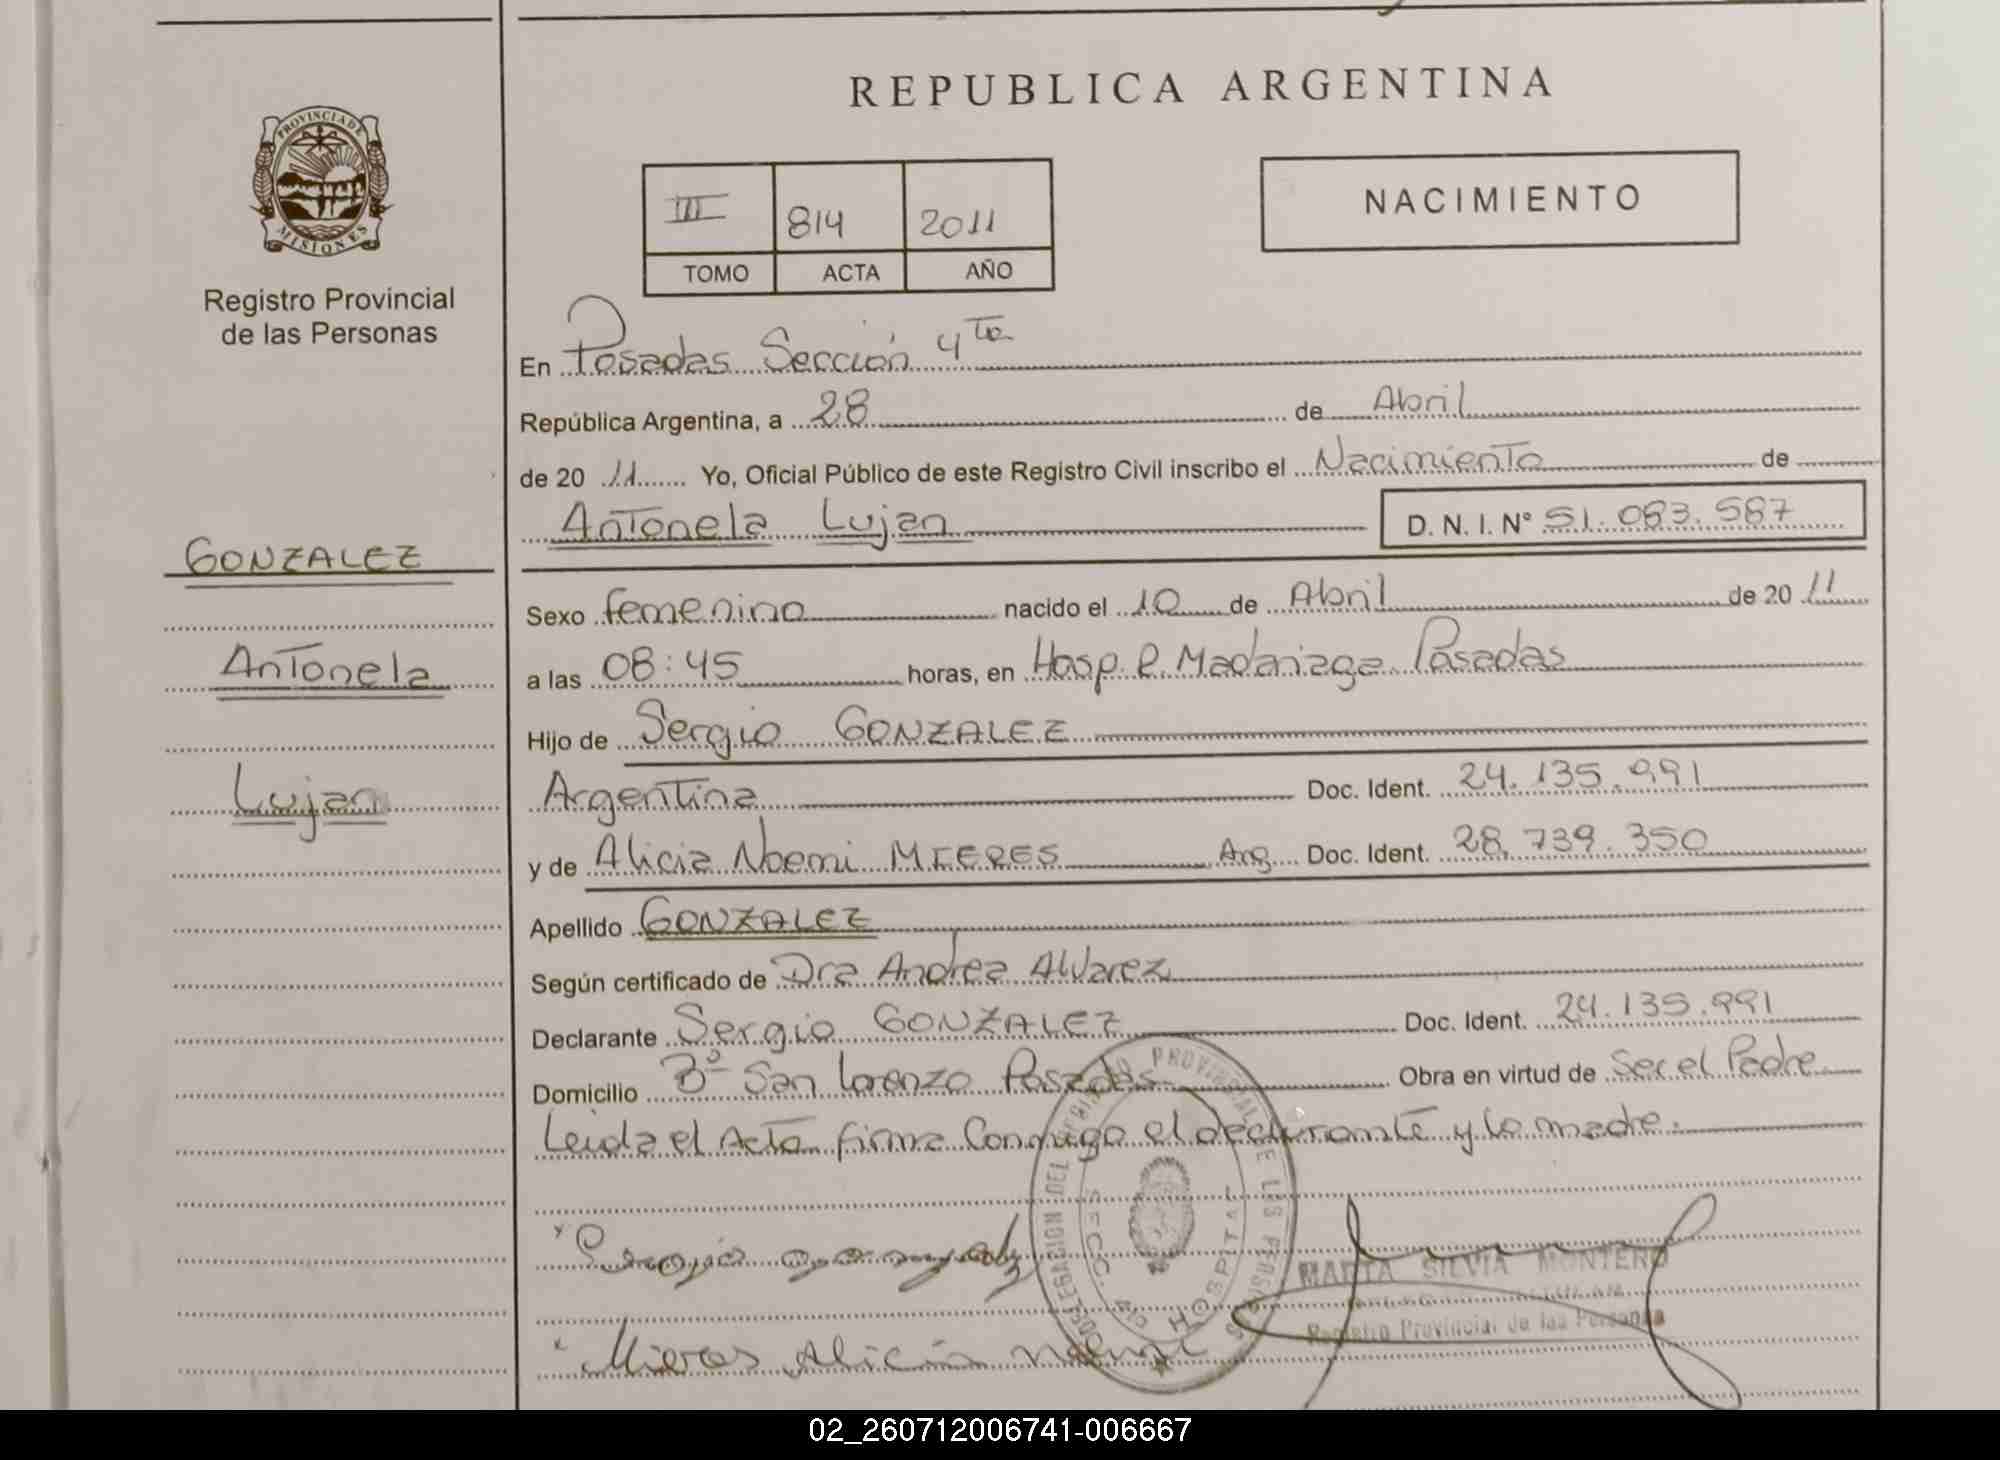 REPUBLICA ARGENTINA
PROVINCIA DE
MISIONES
Registro Provincial
de las Personas
III 814 2011
TOMO ACTA AÑO
NACIMIENTO
En Posadas Sección 4ta
República Argentina, a 28 de Abril
de 20 11 Yo, Oficial Público de este Registro Civil inscribo el Nacimiento de
Antonela Lujan D. N. I. Nº 51.083.587
GONZALEZ
Antonela
Lujan
Sexo femenino nacido el 10 de Abril de 20 11
a las 08:45 horas, en Hosp. R. Madariaga Posadas
Hijo de Sergio GONZALEZ
Argentina Doc. Ident. 24.135.991
y de Alicia Noemi MIERES Arg. Doc. Ident. 28.739.350
Apellido GONZALEZ
Según certificado de Dra Andrea Alvarez
Declarante Sergio GONZALEZ Doc. Ident. 24.135.991
Domicilio Bº San Lorenzo Posadas Obra en virtud de Ser el Padre
Leida el Acta firma Conmigo el declarante y la madre.
DELEGACION DEL REGISTRO PROVINCIAL DE LAS PERSONAS
SECC. 4º HOSPITAL
MARTA SILVIA MONTERO
Registro Provincial de las Personas
Mieres Alicia Noemi
02_260712006741-006667